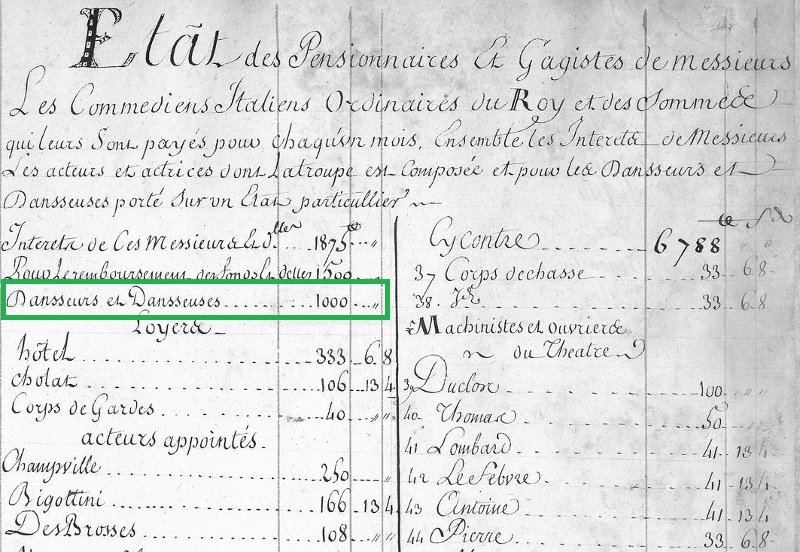 Etat des Pensionnaires Et Gagistes de messieurs
Les Commediens Italiens Ordinaires du Roy et des Sommes
qui leurs Sont payés pour chaqu'un mois, Ensemble les Interets de Messieurs
Les acteurs et actrices dont Latroupe est Composée et pour les Dansseurs et
Dansseuses porté Sur un Etat particullier
Interets de Ces Messieurs & d.lles 1875 "
Pour Le remboursement des fonds 1500 "
Dansseurs et Dansseuses 1000 "
Loyers
hôtel 333 6 8
cholat 106 13 4
Corps de Gardes 40 " "
acteurs appointés
Champville 250
Bigottini 166 13 4
DesBrosses 108 " "
Cy contre 6788 " "
37 Corps de chasse 33 6 8
38 Id 33 6 8
Machinistes et ouvriers
du Theatre
39 Duclos 100 " "
40 Thomas 50 "
41 Lombard 41 13 4
42 Le Febvre 41 13 4
43 Antoine 41 13 4
44 Pierre 33 6 8